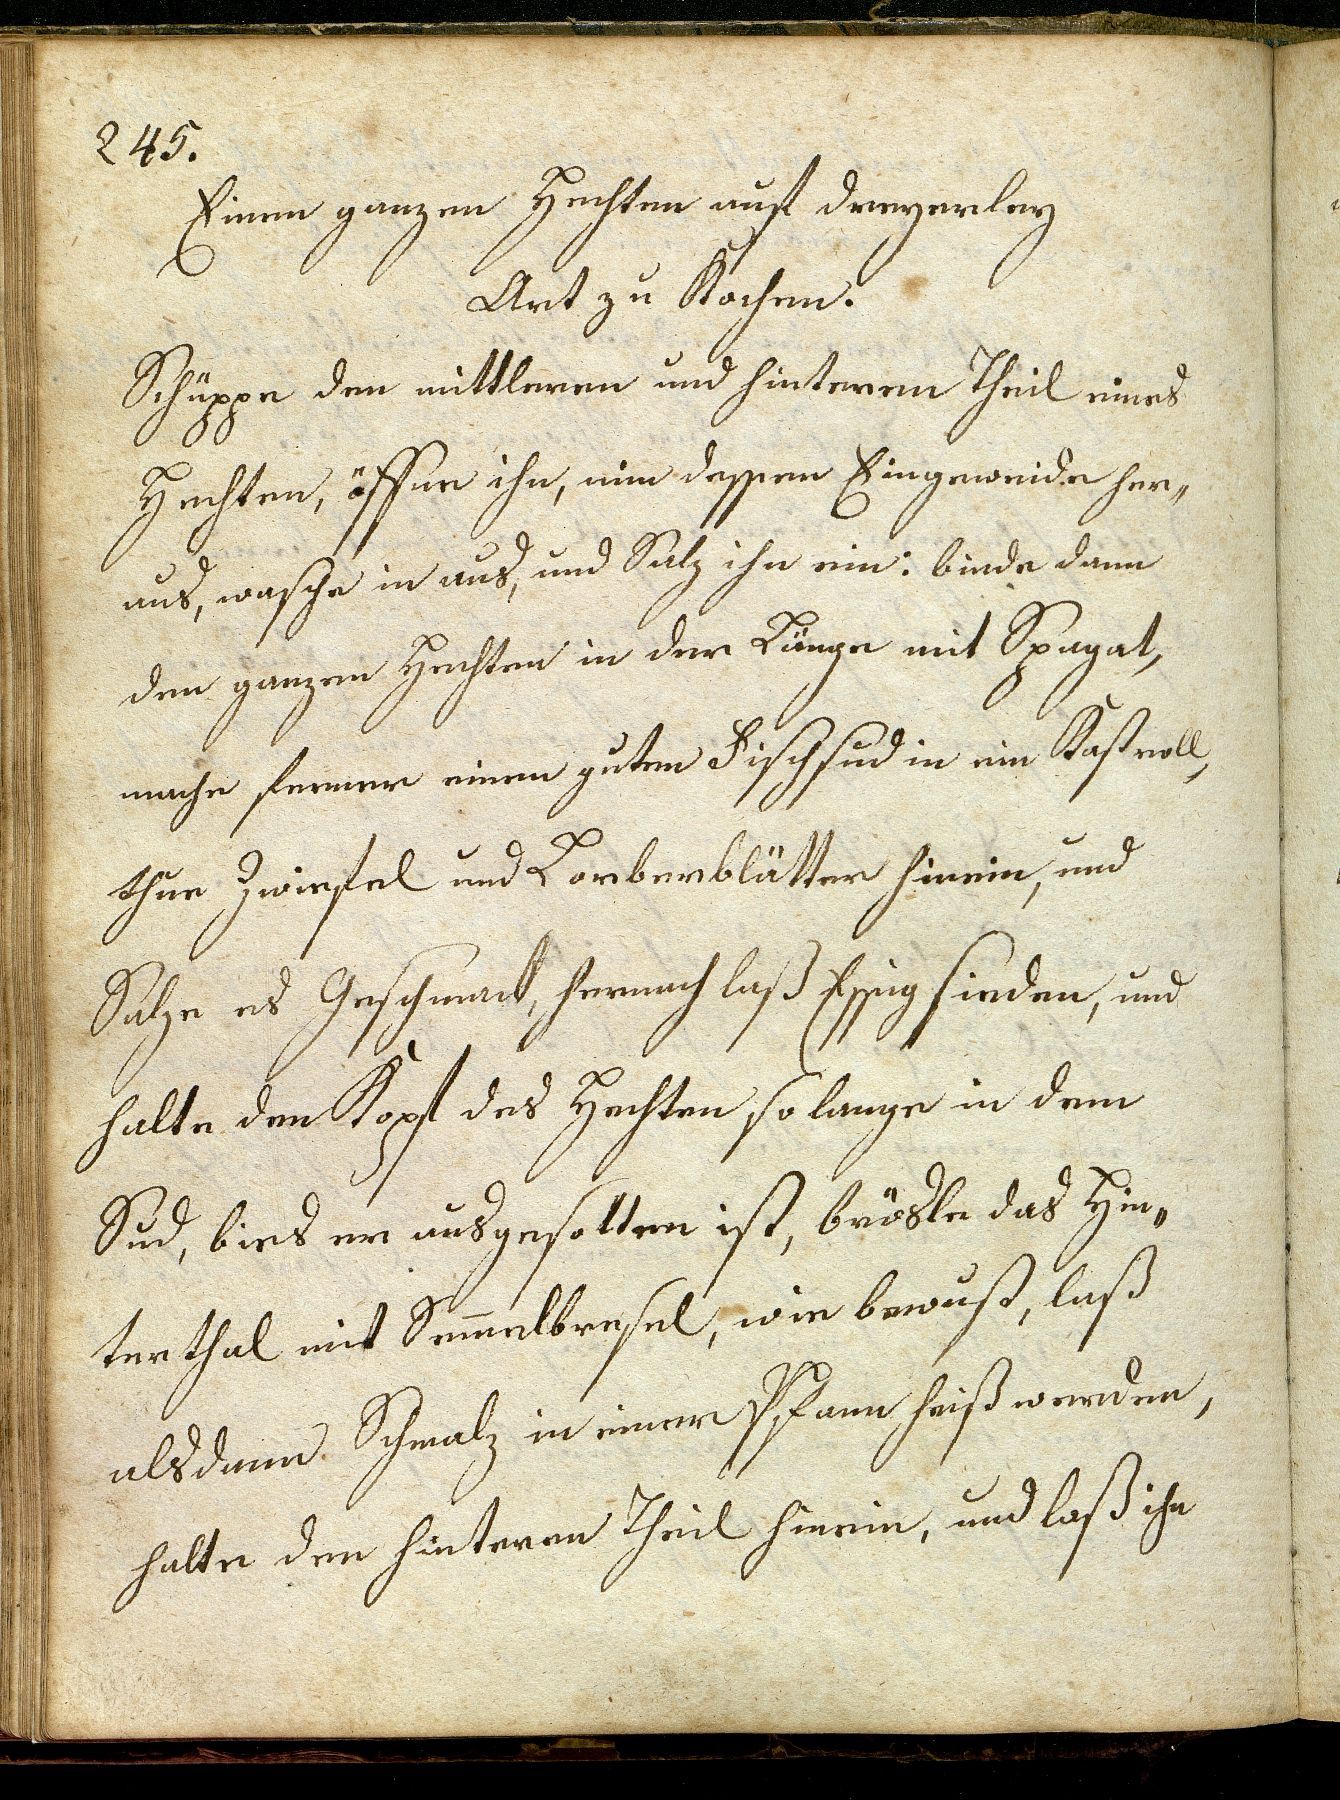 245.
Einen ganzen Hechten auf dreyerley
Art zu Kochen.
Schüppe den mittleren und hinteren Theil eines
Hechten, öffne ihn, nim dessen Eingeweide her„
aus, wasche in aus, und Salz ihn ein: binde dann
den ganzen Hechten in der Länge mit Spagat,
mache ferner einen guten Fischsud in ein Kastroll,
thue Zwiefel und Lorberblätter hinein, und
Salze es Geschmack, hernach laß Essig sieden, und
halte den Kopf des Hechten so lange in dem
Sud, bies er ausgesotten ist, brösle das Hin„
terthal mit Sem̅elbresel, wie bewust, laß
alsdann Schmalz in einer Pfann heiß werden,
halte den hinteren Theil hinein, und laß ihn